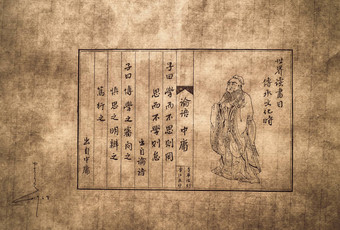 世界读書日
傳承文化時
論語 中庸
子曰 學而不思則罔
思而不學則怠
出自論語
子曰 博學之審問之
慎思之明辨之
篤行之
出自中庸